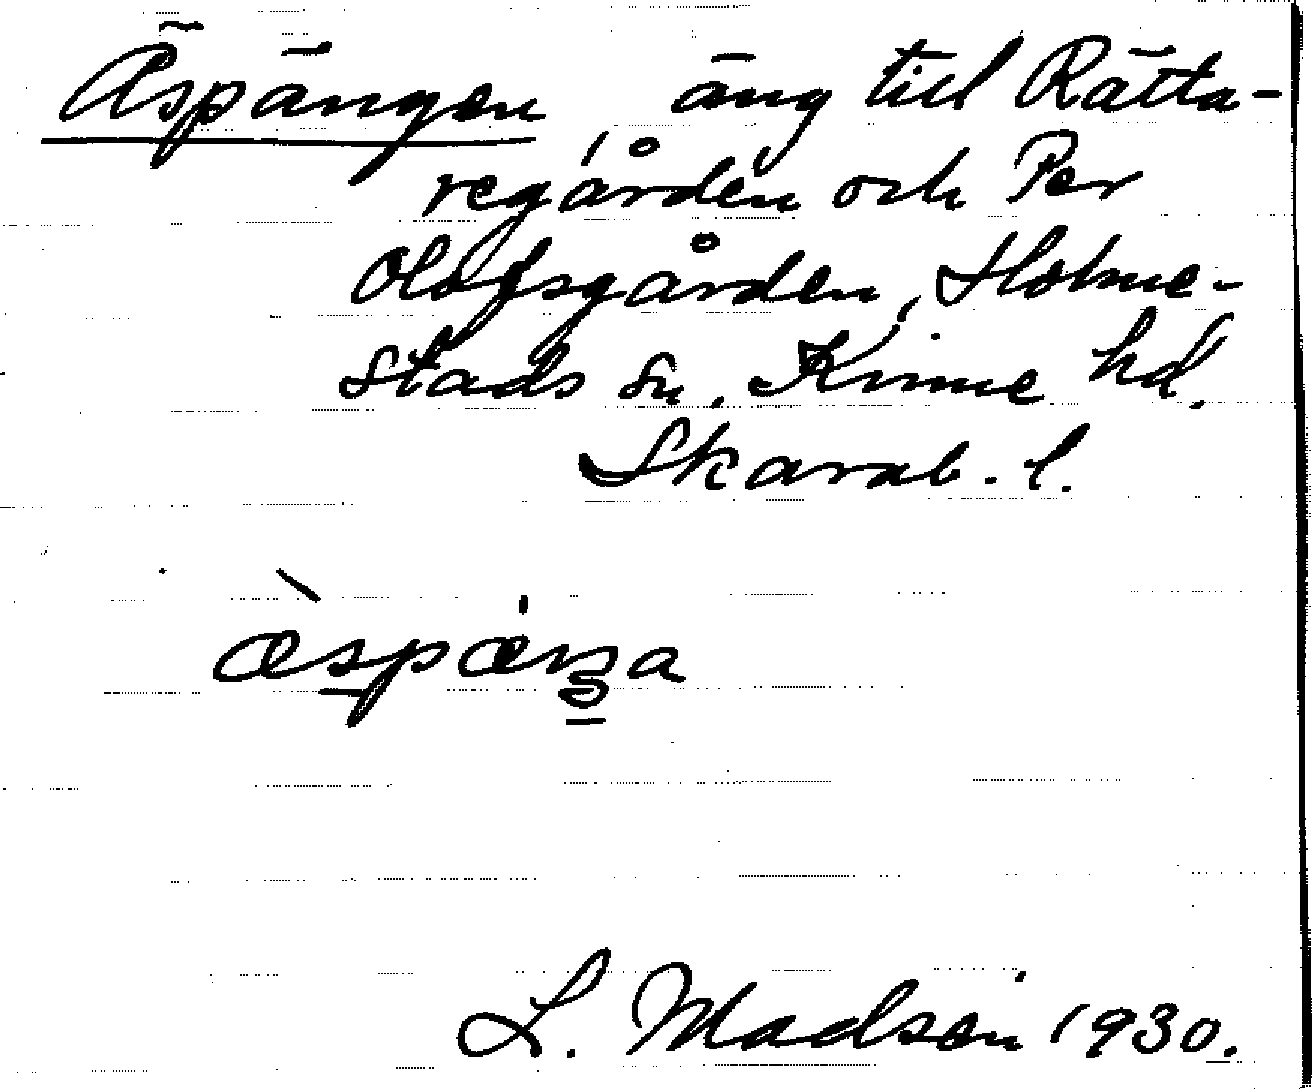 Äspängen, äng till Rätta-
regården och Per
Olofsgården, Holme-
stads sn. Kinne hd.
Skarab. l.
æ̀spæŋa
L. Madsén 1930.